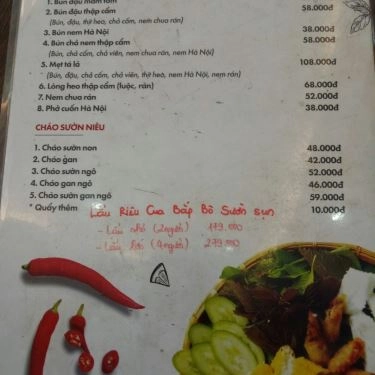 1. Bún đậu mắm tôm
2. Bún đậu thập cẩm 58.000đ
(Bún, đậu, thịt heo, chả cốm, nem chua rán)
3. Bún nem Hà Nội 38.000đ
4. Bún chả nem thập cẩm 58.000đ
(Bún, chả cốm, chả viên, nem chua rán, nem Hà Nội)
5. Mẹt tá lả 108.000đ
(Bún, đậu, chả cốm, chả viên, thịt heo, nem Hà Nội, nem rán)
6. Lòng heo thập cẩm (luộc, rán) 68.000đ
7. Nem chua rán 52.000đ
8. Phở cuốn Hà Nội 38.000đ
CHÁO SƯỜN NIÊU
1. Cháo sườn non 48.000đ
2. Cháo gan 42.000đ
3. Cháo sườn ngô 52.000đ
4. Cháo gan ngô 46.000đ
5. Cháo sườn gan ngô 59.000đ
* Quẩy thêm 10.000đ
Lẩu Riêu Cua Bắp Bò Sườn sụn
- Lẩu nhỏ (2người) 179.000
- Lẩu lớn (4người) 279.000